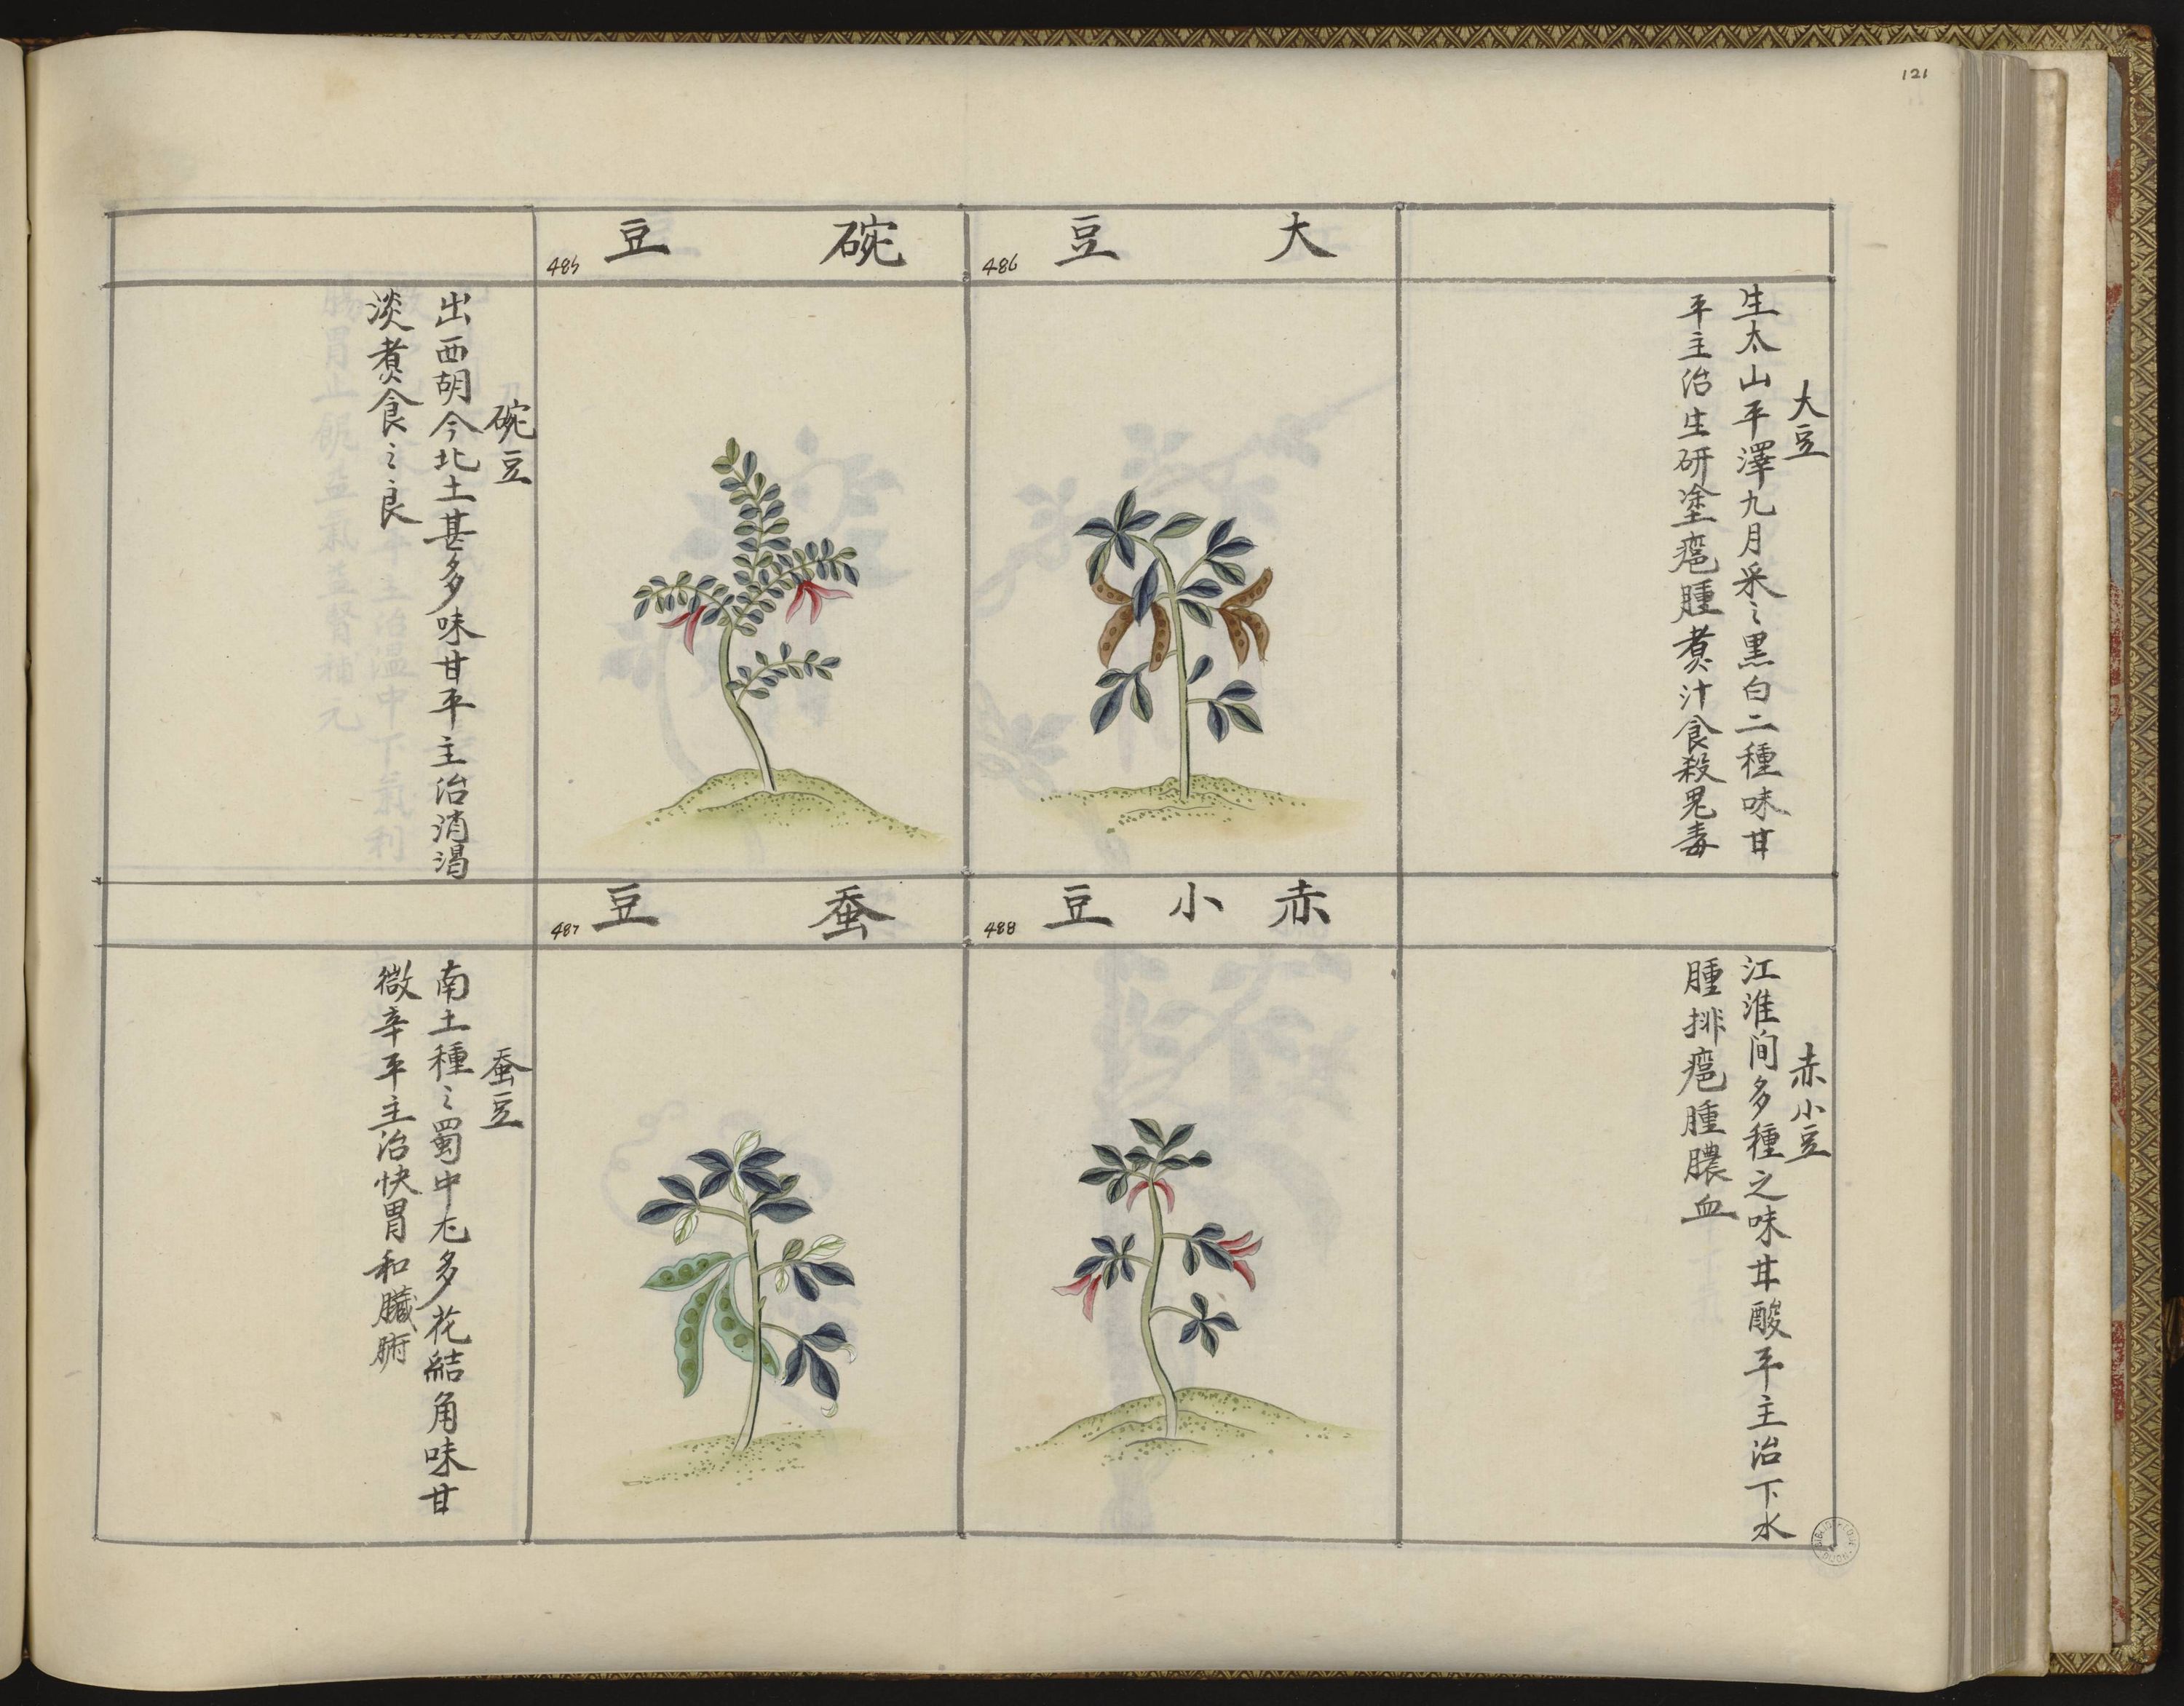 121
大豆
486
大豆
生太山平澤九月采之黑白二種味甘
平主治生研塗瘡腫煮汁食殺鬼毒
碗豆
485
碗豆
出西胡今北土甚多味甘平主治消渴
淡煮食之良
赤小豆
488
赤小豆
江淮间多種之味甘酸平主治下水
腫排瘡腫膿血
蚕豆
487
蚕豆
南土種之蜀中尤多花結角味甘
微辛平主治快胃和臟腑